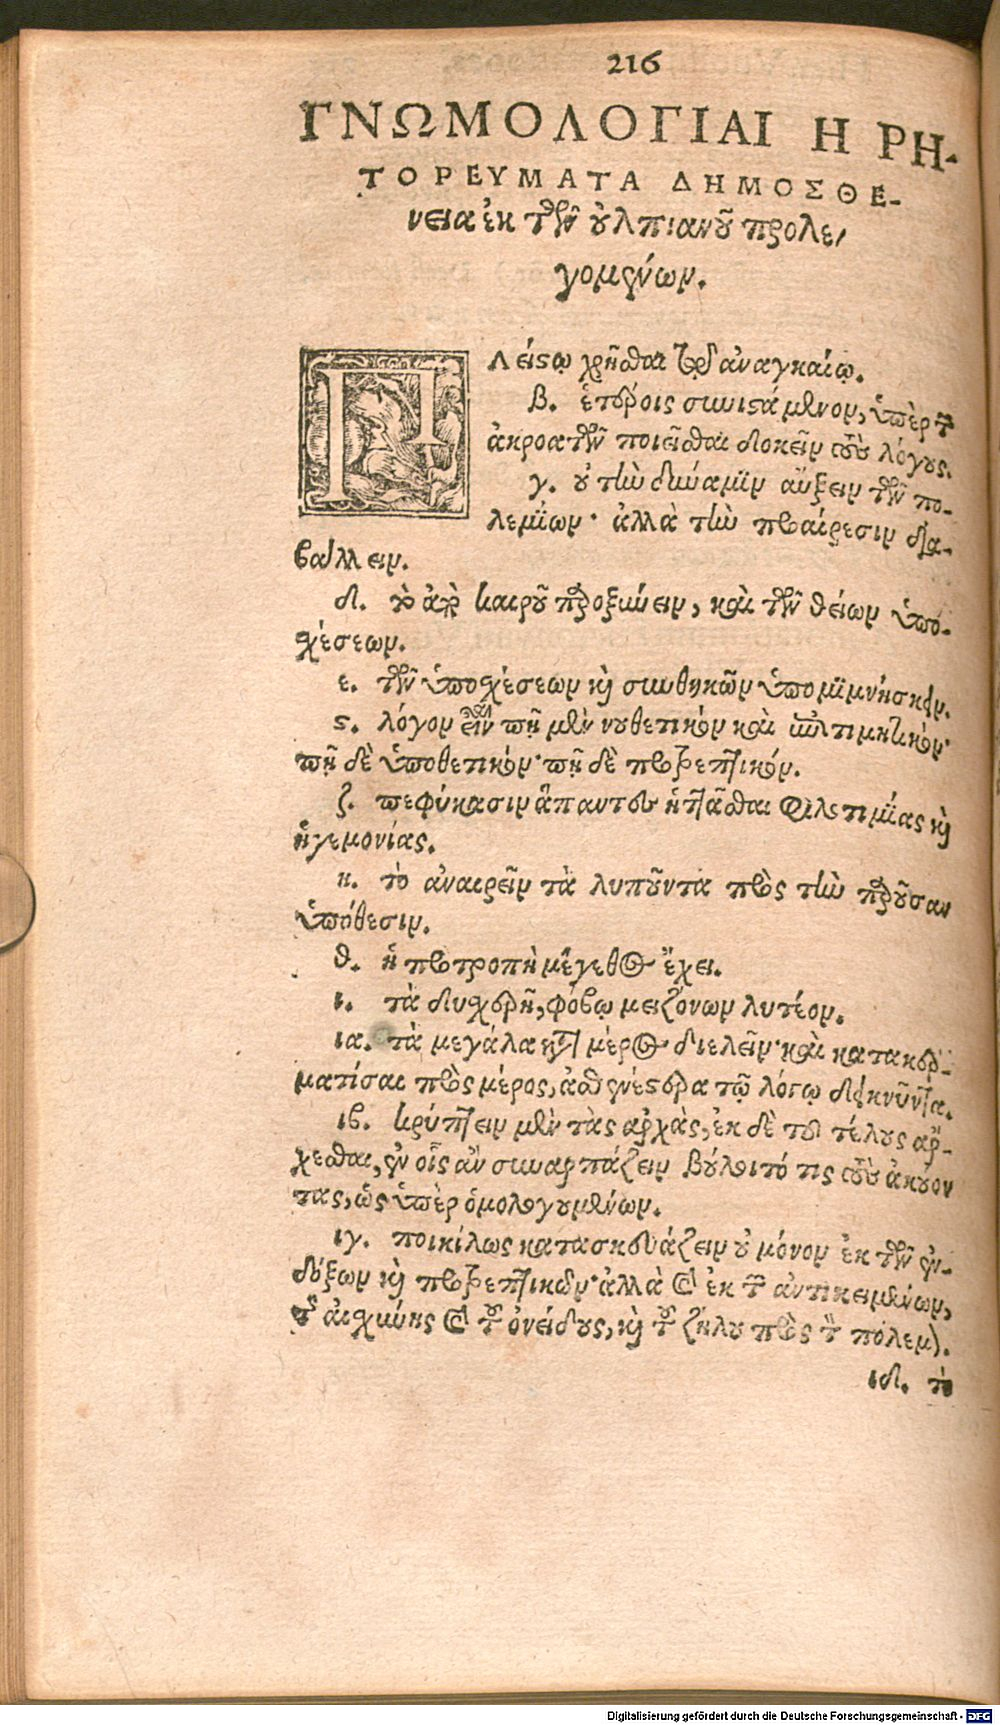 216
ΓΝΩΜΟΛΟΓΙΑΙ Η ΡΗ-
ΤΟΡΕΥΜΑΤΑ ΔΗΜΟΣΘΕ-
νεια ἐκ τῶν ὀλπιανοῦ προλε/
γομένων.
ΠΛείςῳ χρῆσθαι ἀναγκαίῳ.
β. ἑτέροις συνιςάμενον, ὑπὲρ τῶν
ἀκροατῶν ποιεῖσθαι δοκεῖν τοὺς λόγους.
γ. οὐ τὴν δύναμιν αὔξειν τῶν πο-
λεμίων· ἀλλὰ τὴν προαίρεσιν δια-
βάλλειν.
δ. καιροῦ παροξύνειν, καὶ τῶν θείων ὑπο-
σχέσεων.
ε. τῶν ὑποσχέσεων καὶ συνθηκῶν ὑπομιμνήσκειν.
ϛ. λόγον εἶναι πῆ μὲν νουθετικὸν καὶ ἐπιτιμητικόν·
πῆ δὲ ὑποθετικόν· πῆ δὲ προτρεπτικόν.
ζ. πεφύκασιν ἅπαντες ἡττᾶσθαι φιλοτιμίας καὶ
ἡγεμονίας.
η. τὸ ἀναιρεῖν τὰ λυποῦντα πρὸς τὴν παροῦσαν
ὑπόθεσιν.
θ. ἡ προτροπὴ μέγεθος ἔχει.
ι. τὰ δυσχερῆ, φόβῳ μειζόνων λυτέον.
ια. τὰ μεγάλα κατὰ μέρος διελεῖν· καὶ κατακερ-
ματίσαι πρὸς μέρος, ἀσθενέςερα τῷ λόγῳ δεικνῦντα.
ιβ. κρύπτειν μὲν τὰς ἀρχὰς, ἐκ δὲ τοῦ τέλους ἄρ-
χεσθαι, ἐν οἷς ἂν συναρπάζειν βούλοιτό τις τοὺς ἀκούον
τας, ὡς ὑπὲρ ὁμολογουμένων.
ιγ. ποικίλως κατασκευάζειν οὐ μόνον ἐκ τῶν ἐν-
δόξων καὶ προτρεπτικῶν· ἀλλὰ καὶ ἐκ τῶν ἀντικειμένων,
τῆς αἰσχύνης καὶ τοῦ ὀνείδους, καὶ τοῦ ζήλου πρὸς τὸν πόλεμον.
ιδ. τὸ
Digitalisierung gefördert durch die Deutsche Forschungsgemeinschaft - DFG